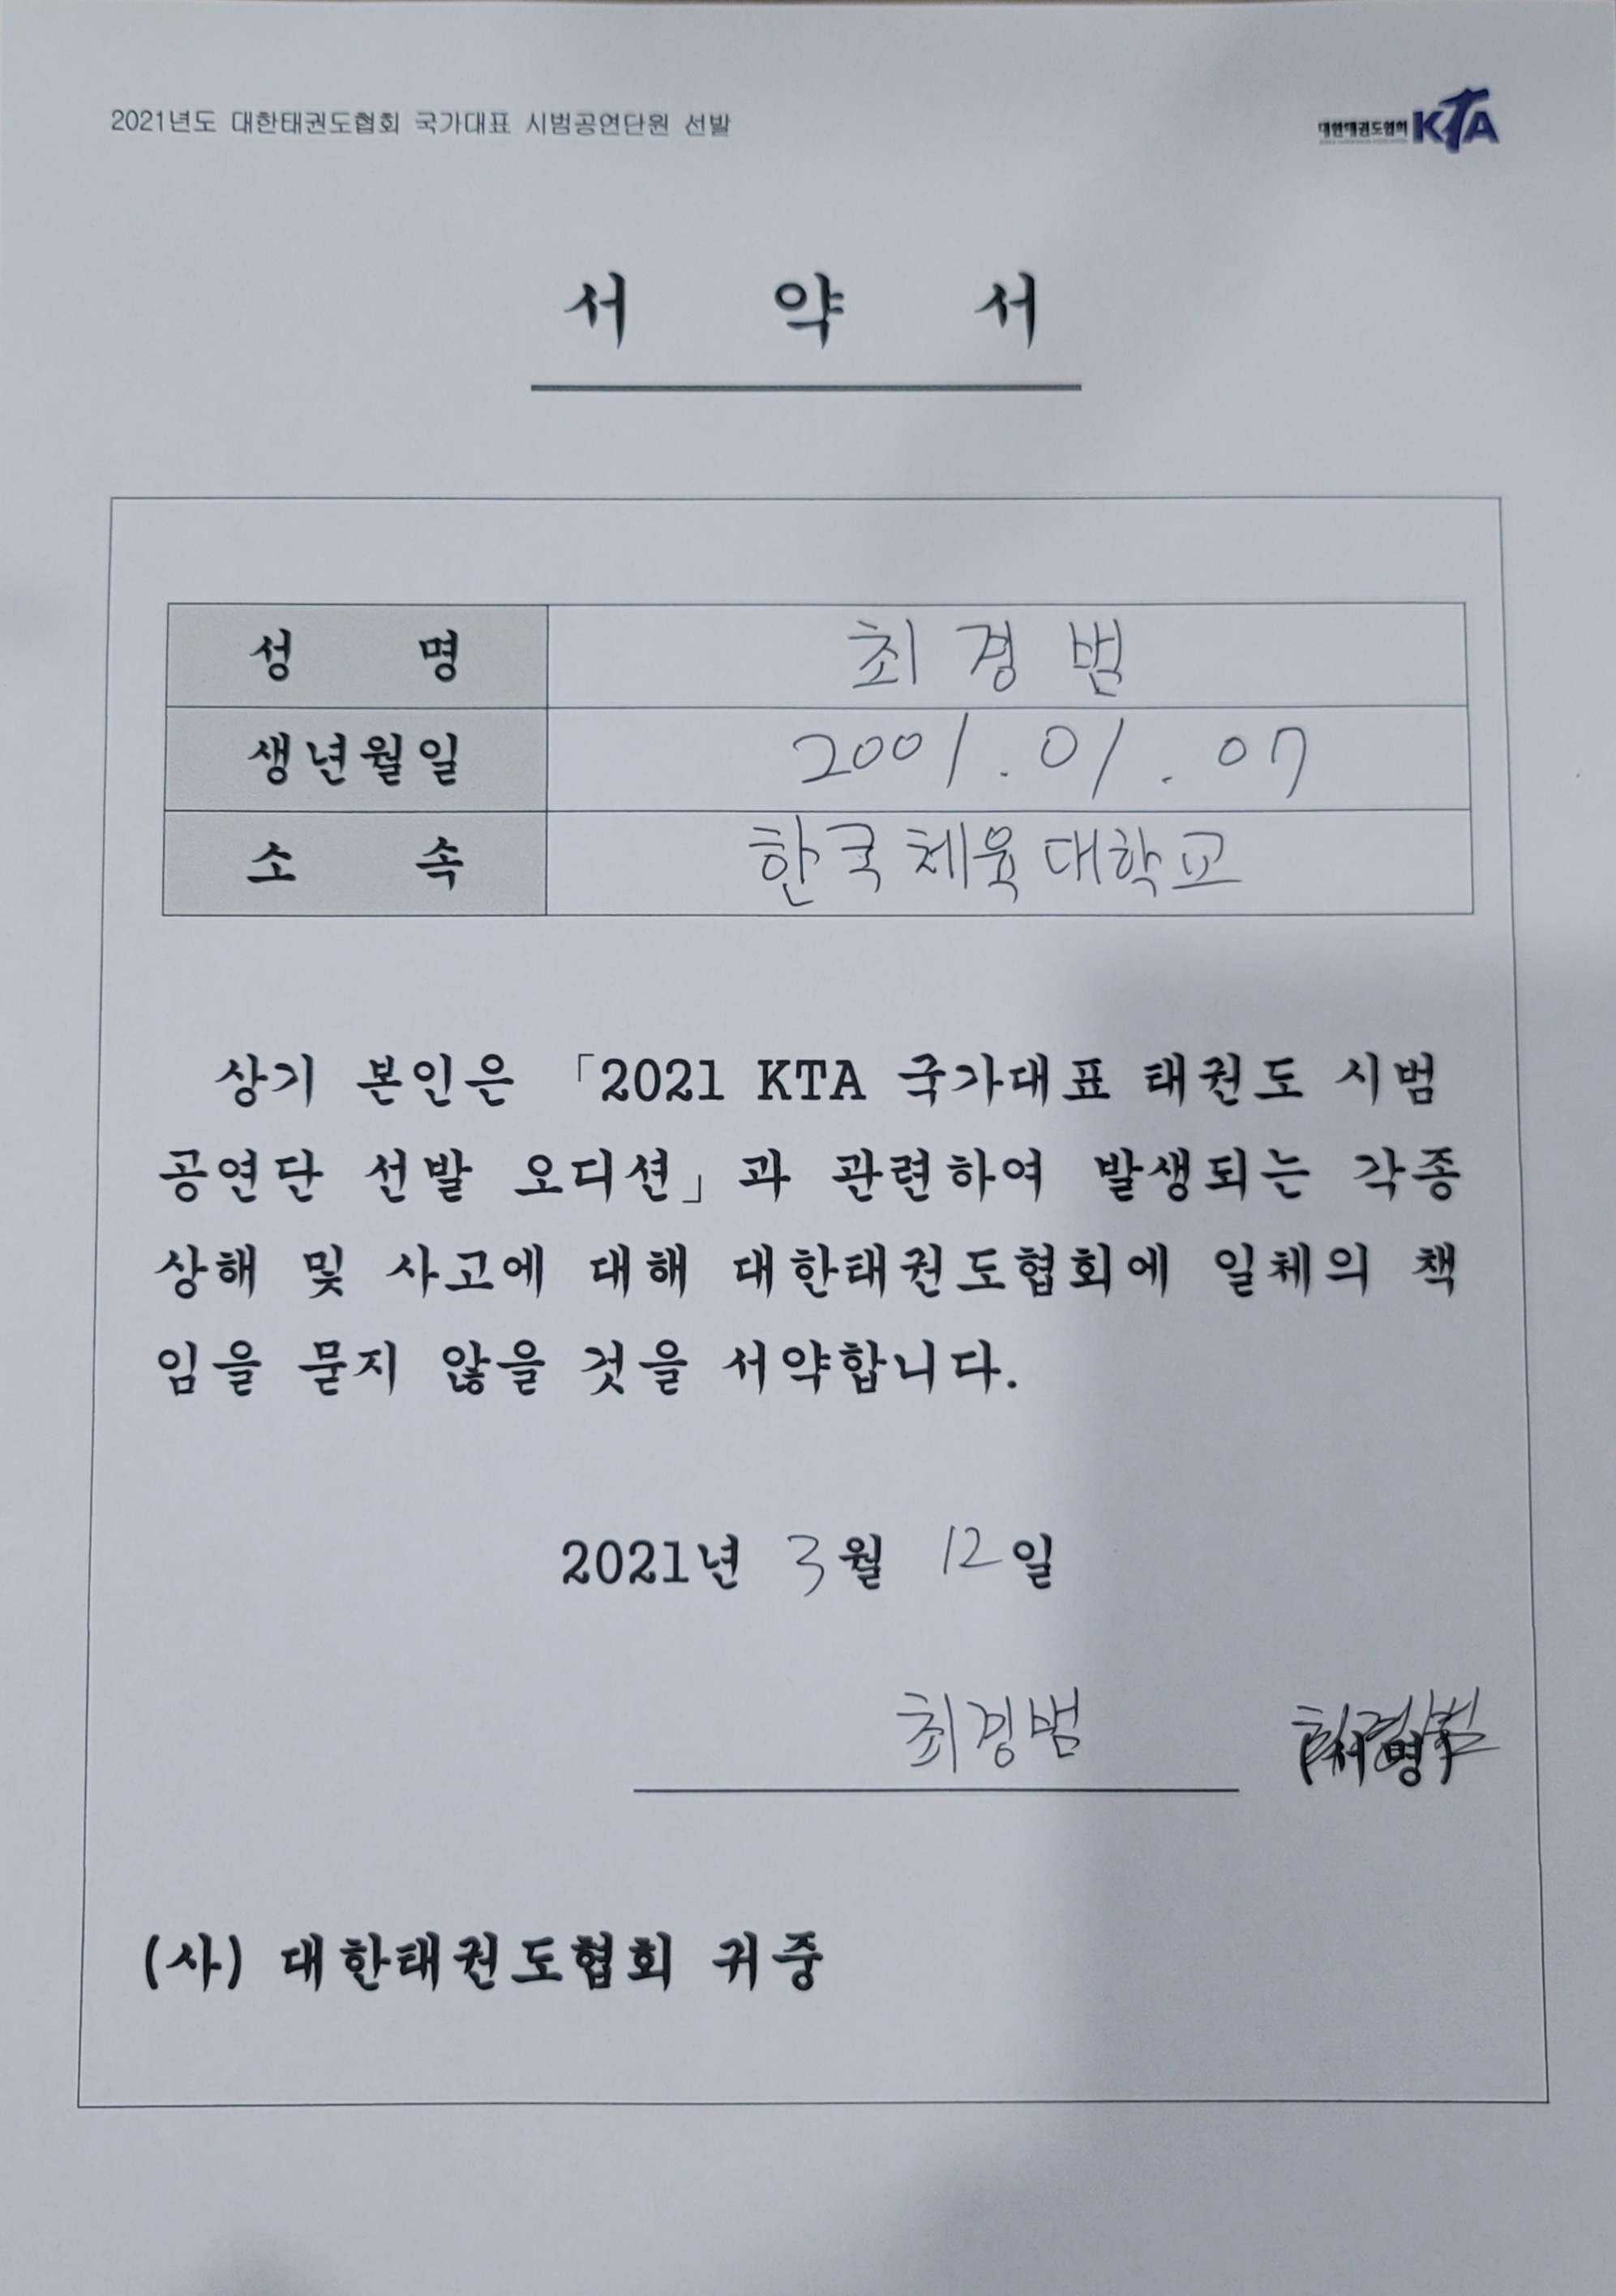 2021년도 대한태권도협회 국가대표 시범공연단원 선발
대한태권도협회 KTA
서 약 서
성 명 최경범
생년월일 2001.01.07
소 속 한국체육대학교
상기 본인은 「2021 KTA 국가대표 태권도 시범
공연단 선발 오디션」과 관련하여 발생되는 각종
상해 및 사고에 대해 대한태권도협회에 일체의 책
임을 묻지 않을 것을 서약합니다.
2021년 3월 12일
최경범 (서명) 최경범
(사) 대한태권도협회 귀중